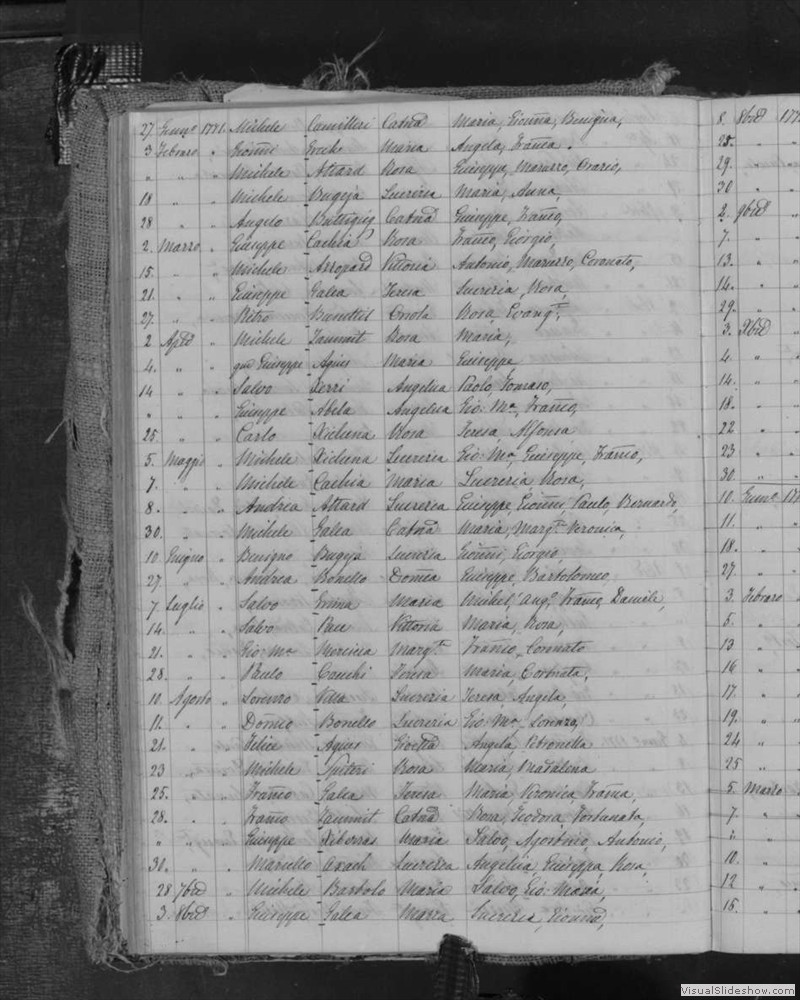 27. Genn.º 1771. Michele Camilleri Catnã Maria, Gionña, Benigna,
3 Febraro " Gionñi Maria Angela, Franca.
" " " Michele Attard Rosa Giuseppa, Marurro, Orazio,
18 " " Michele Bugeja Lucrezia Maria, Anna,
28 " " Angelo Buttigieg Catnã Giuseppe, Franco,
2. Marzo " Giuseppe Cachia Rosa Franco, Giorgio,
15. " " Michele Azzopard Vittoria Antonio, Marurro, Coronato,
21. " " Giuseppe Galea Teresa Lucrezia, Rosa,
27. " " Pietro Buruttil Onola Rosa, Evangtª,
2 Aple " Michele Zammit Rosa Maria,
4. " " qm Giuseppe Agius Maria Giuseppe
14 " " Salvo Zerri Angelica Paolo, Tomaso,
" " " Giuseppe Abela Angelica Gio: Mª, Franco,
25. " " Carlo Xicluna Rosa Teresa, Alfonsa
5. Maggio " Michele Xicluna Lucrezia Gio: Mª, Giuseppe, Franco,
7. " " Michele Cachia Maria Lucrezia, Rosa,
8. " " Andrea Attard Lucrezia Giuseppe, Gionñi, Paulo, Bernardo,
30. " " Michele Galea Catnã Maria, Margtª, Veronica,
10. Giugno " Benigno Bugeja Lucrezia Gionñi, Giorgio,
27. " " Andrea Bonello Domca Giuseppe, Bartolomeo,
7 Luglio " Salvo Maria Michel' Ang.º, Franco, Daniele,
14. " " Salvo Pace Vittoria Maria, Rosa,
21. " " Gio: Mª Mercieca Margtª Franco, Coronato
28. " " Paulo Cauchi Teresa Maria,
10. Agosto " Lorenzo Villa Lucrezia Teresa, Angela,
11. " " Domco Bonello Lucrezia Gio: Mª, Lorenzo,
21. " " Felice Agius Angela, Petronella
23 " " Michele Spiteri Rosa Maria, Madalena
25. " " Franco Galea Teresa Maria, Veronica, Franca,
28. " " Franco Zammit Catnã Rosa, Teodora, Fortunata,
" " " Giuseppe Xiberras Maria Salvo, Agostino, Antonio,
30. " " Marcello Axach Lucrezia Angelica, Giuseppa, Rosa,
28 7bre " Michele Bartolo Maria Salvo, Gio: Maria,
3. 8bre " Giuseppe Galea Maria Lucrezia, Gionña,
8. 8bre 177
25. "
29. "
30 "
2. 9bre "
7. "
13. "
14. "
29. "
3. Xbre "
4. "
14. "
18. "
22 "
23 "
30. "
10. Genn.º 17
11. "
18. "
27. "
3 Febraro
5. "
13 "
16 "
17. "
19. "
24 "
25 "
5. Marzo
7. "
" "
10. "
12 "
15.
VisualSlideshow.com